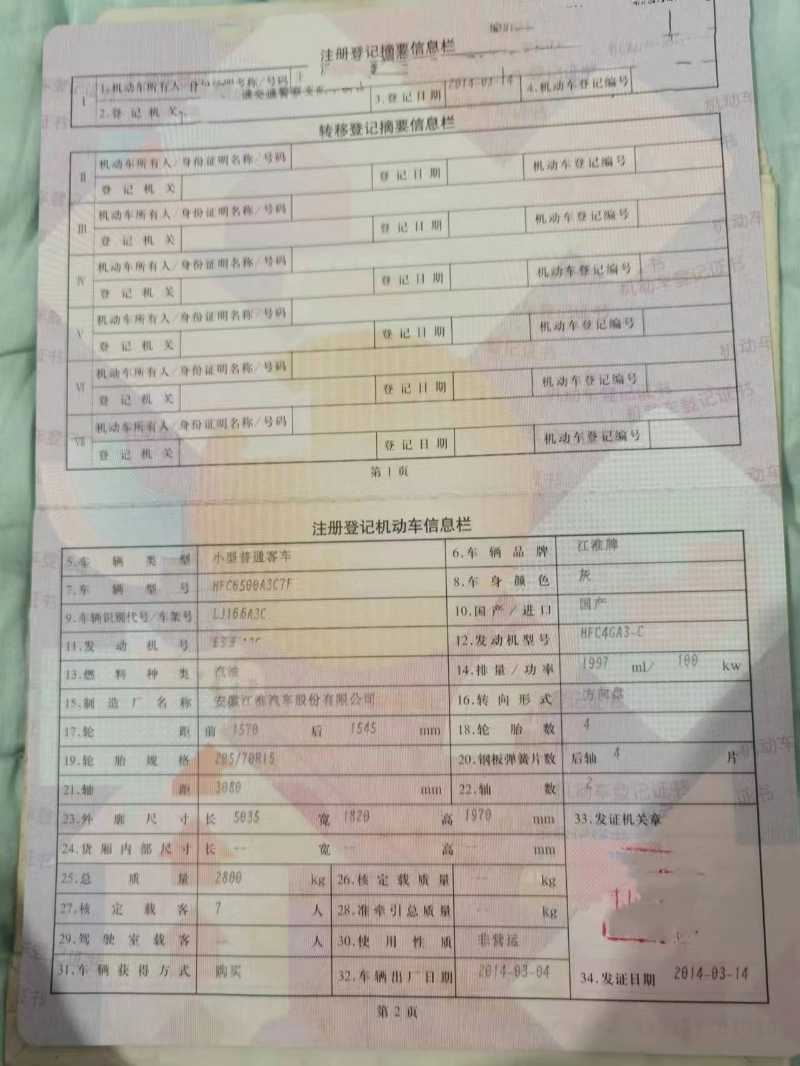 注册登记摘要信息栏
I 1.机动车所有人 号称/号码
2.登记机关 3.登记日期 2014-03-14 4.机动车登记编号
转移登记摘要信息栏
II 机动车所有人/身份证明名称/号码
登记机关 登记日期 机动车登记编号
III 机动车所有人/身份证明名称/号码
登记机关 登记日期 机动车登记编号
IV 机动车所有人/身份证明名称/号码
登记机关 登记日期 机动车登记编号
V 机动车所有人/身份证明名称/号码
登记机关 登记日期 机动车登记编号
VI 机动车所有人/身份证明名称/号码
登记机关 登记日期 机动车登记编号
VII 机动车所有人/身份证明名称/号码
登记机关 登记日期 机动车登记编号
第 1 页
注册登记机动车信息栏
5.车辆类型 小型普通客车 6.车辆品牌 江淮牌
7.车辆型号 HFC6500A3C7F 8.车身颜色 灰
9.车辆识别代号/车架号 LJ166A3C 10.国产/进口 国产
11.发动机号 12.发动机型号 HFC4GA3-C
13.燃料种类 汽油 14.排量/功率 1997 ml/ 100 kw
15.制造厂名称 安徽江淮汽车股份有限公司 16.转向形式 方向盘
17.轮距 前 1570 后 1545 mm 18.轮胎数 4
19.轮胎规格 205/70R15 20.钢板弹簧片数 后轴 4 片
21.轴距 3080 mm 22.轴数 2
23.外廓尺寸 长 5035 宽 1820 高 1970 mm 33.发证机关章
24.货厢内部尺寸 长 -- 宽 -- 高 -- mm
25.总质量 2800 kg 26.核定载质量 -- kg
27.核定载客 7 人 28.准牵引总质量 -- kg
29.驾驶室载客 -- 人 30.使用性质 非营运
31.车辆获得方式 购买 32.车辆出厂日期 2014-03-04 34.发证日期 2014-03-14
第 2 页